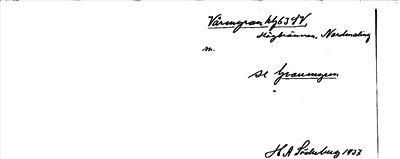 Värmgran hfg63 SV,
Högbrännan, Nordmaling
m.
se Granungen
H A Söderberg 1937